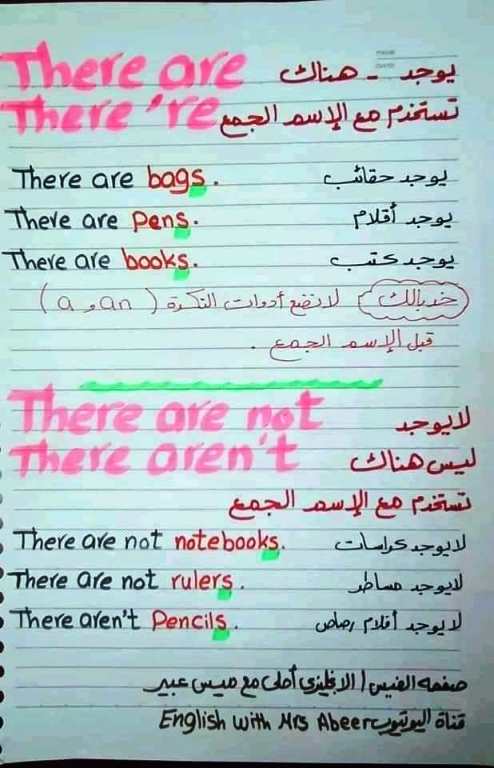 There are يوجد - هناك
There 're تستخدم مع الإسم الجمع
There are bags. يوجد حقائب
There are pens. يوجد أقلام
There are books. يوجد كتب
خد بالك لا نضع أدوات النكرة ( a و an )
قبل الإسم الجمع .
There are not لا يوجد
There aren't ليس هناك
تستخدم مع الإسم الجمع
There are not notebooks. لا يوجد كراسات
There are not rulers. لا يوجد مساطر
There aren't Pencils. لا يوجد أقلام رصاص
صفحه الفيس / الانجليزي أحلى مع ميس عبير
قناة اليوتيوب English with Mrs Abeer